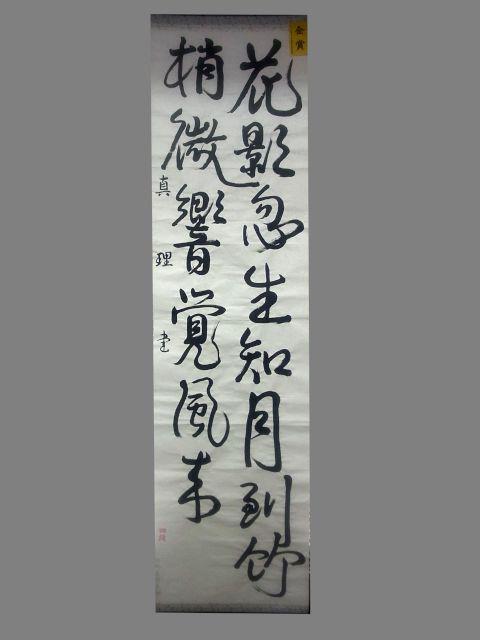 金賞
花影忽生知月到竹
梢微響覚風来
真理書